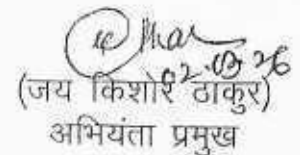 02.09.26
(जय किशोर ठाकुर)
अभियंता प्रमुख